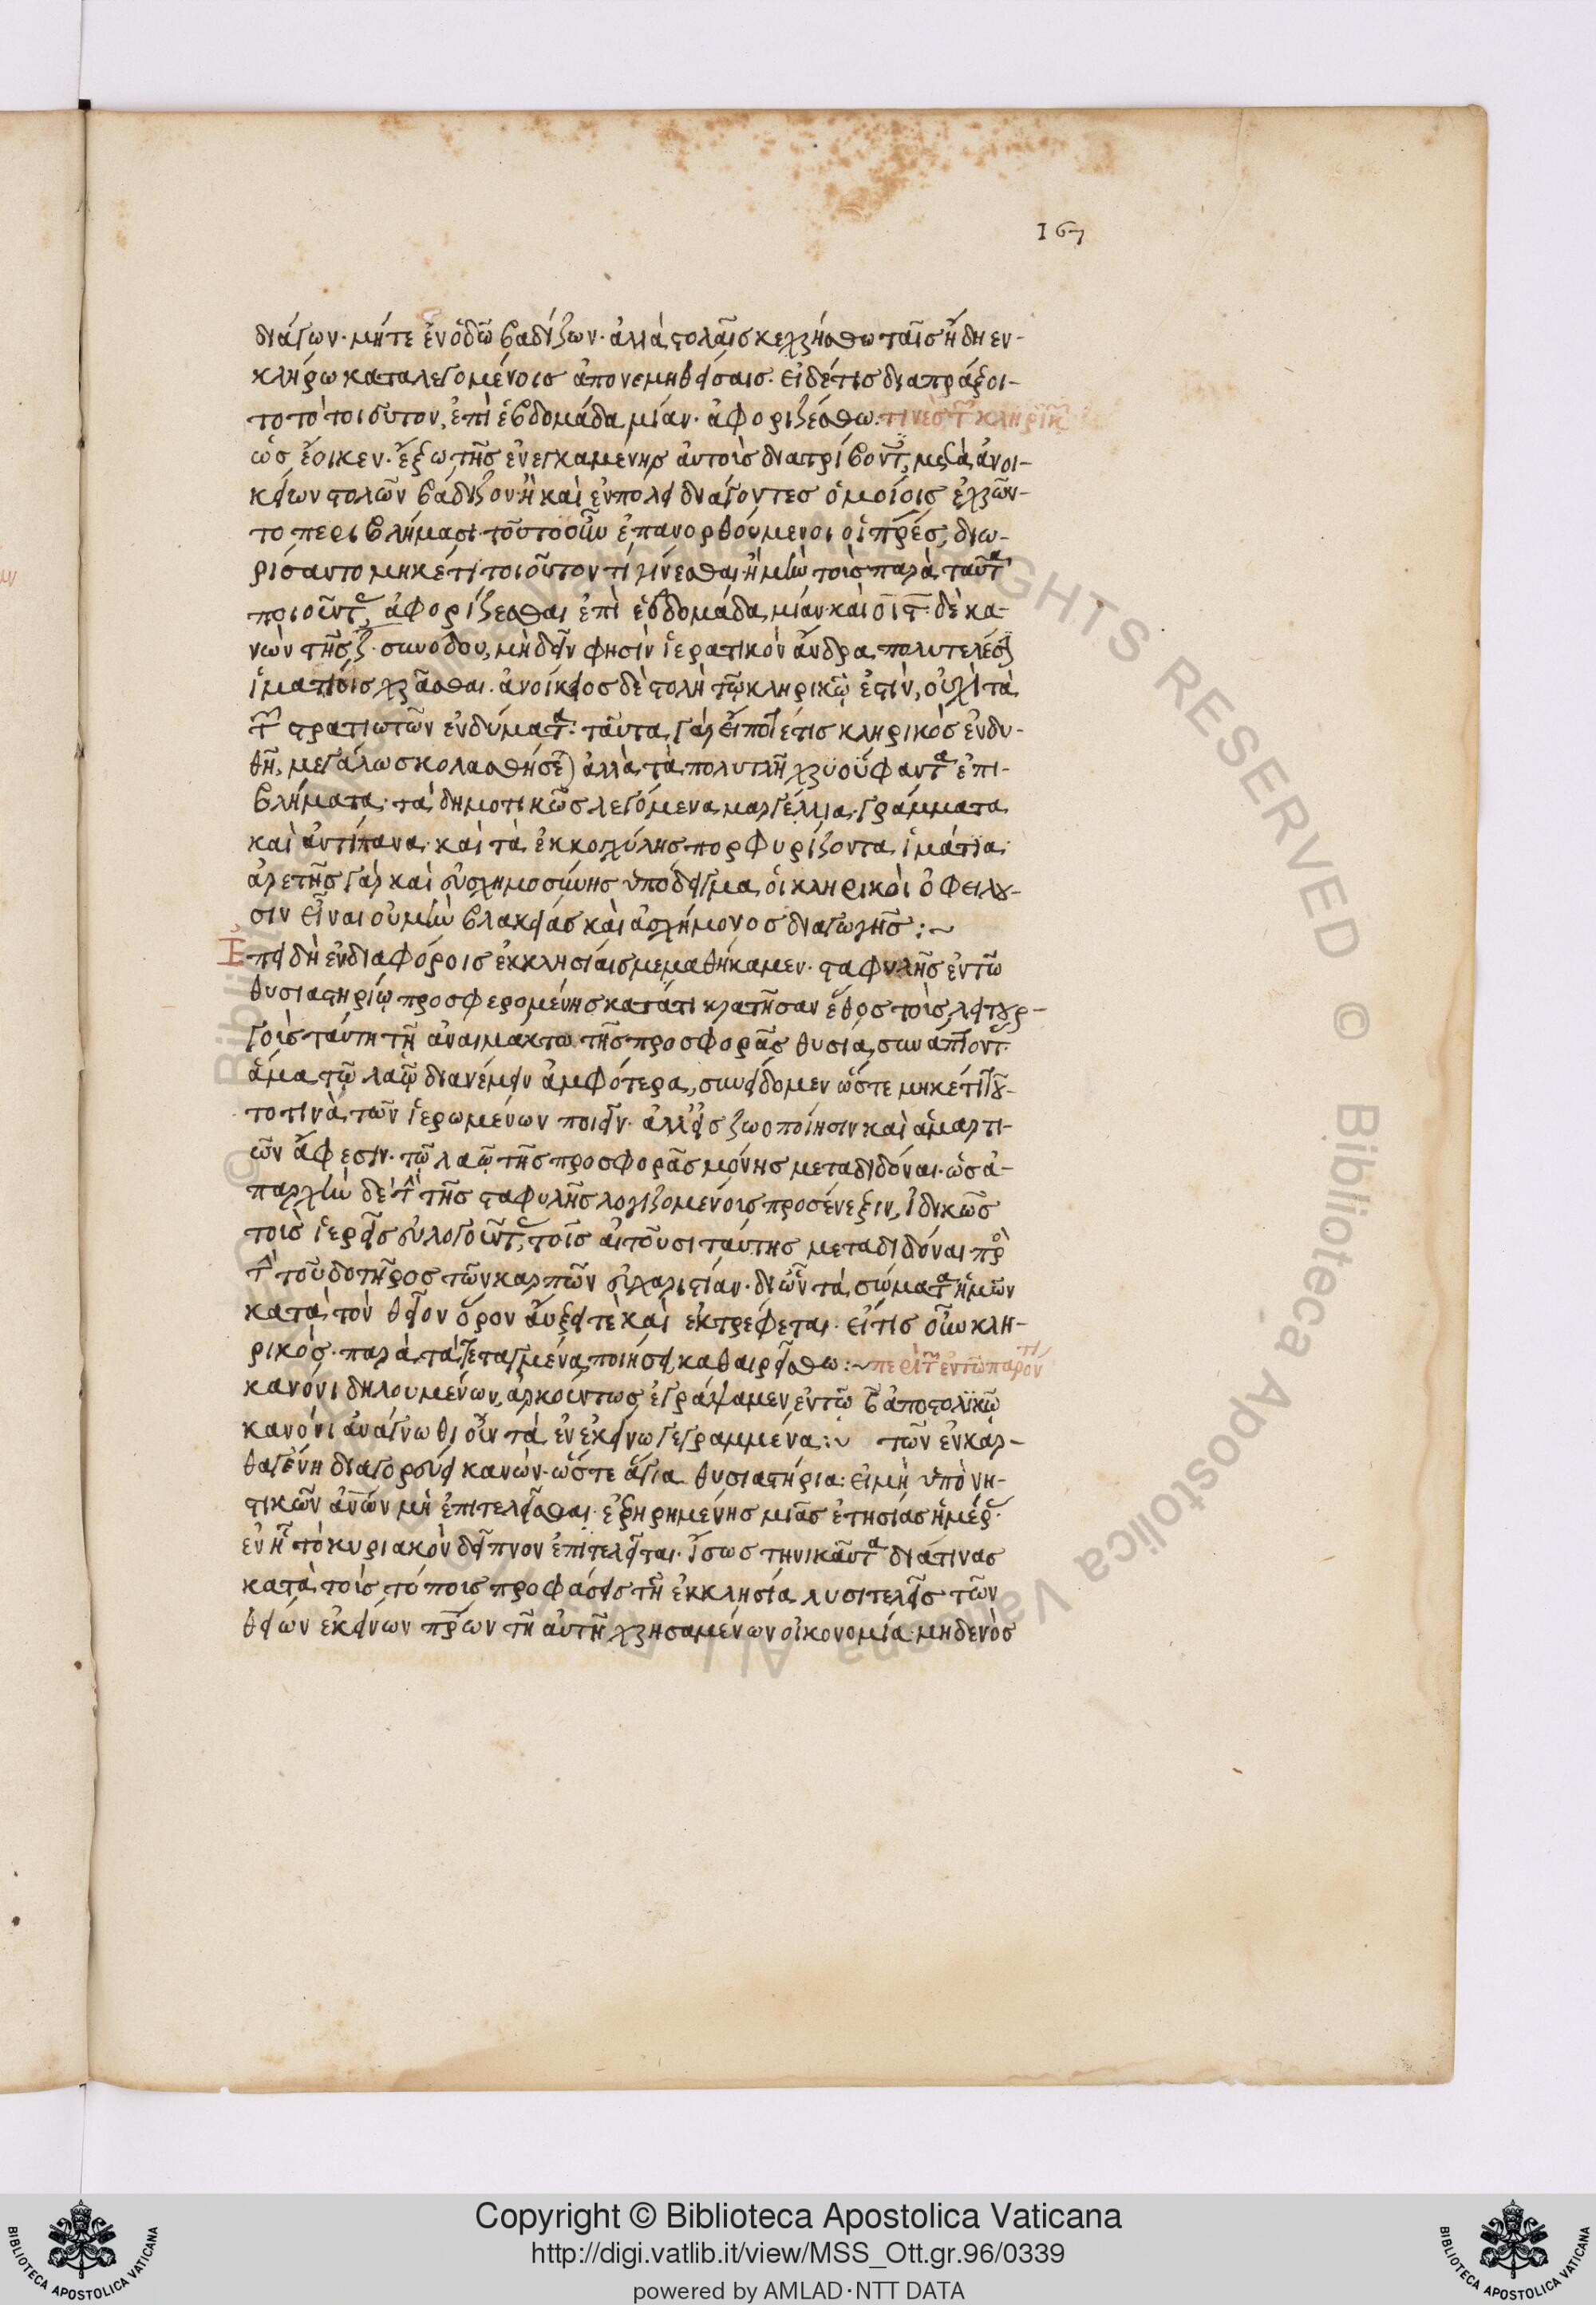 167
διάγων· μήτε ἐν ὁδῶ βαδίζων· ἀλλὰ στολαῖς κεχρήσθω ταῖς ἤδη εν-
κλήρω καταλεγομένοις ἀπονεμηθείσαις. εἰ δέ τις διαπράξοι-
το τὸ τοιοῦτον, ἐπὶ ἑβδομάδα μίαν· ἀφοριζέσθω. τινὲς τῶν κληρικ
ὡς ἔοικεν· ἔξω τῆς ἐνεγκαμένης αὐτοὺς διατρίβοντες, μετὰ ἀνοι-
κείων στολῶν βάδιζον· ἢ καὶ ἐν πόλει διάγοντες ὁμοίοις ἐχρῶν-
το περιβλήμασι. τοῦτο οὖν ἐπανορθούμενοι οἱ πρες, διω-
ρίσαντο μηκέτι τοιοῦτον τὶ γίνεσθαι· ἢ μὴν τοὺς παρὰ ταῦτα
ποιοῦντας, ἀφορίζεσθαι ἐπὶ ἑβδομάδα μίαν· καὶ ὁ ις δὲ κα-
νὼν τῆς ζ συνόδου, μὴ δεῖν φησὶν ἱερατικὸν ἄνδρα πολυτελέσι
ἱματίοις χρᾶσθαι. ἀνοίκειος δὲ στολὴ τῶ κληρικῶ ἐστὶν, οὐχὶ τὰ
τῶν στρατιωτῶν ἐνδύματα· ταῦτα γὰρ εἴποτέ τις κληρικὸς ἐνδυ-
θῆ, μεγάλως κολασθήσεται ἀλλὰ τὰ πολυτελῆ χρυσούφαντα ἐπι-
βλήματα· τὰ δημοτικῶς λεγόμενα μαργέλλια· γράμματα
καὶ ἀντίπανα· καὶ τὰ ἐκ κοχύλης πορφυρίζοντα ἱμάτια·
ἀρετῆς γὰρ καὶ εὐσχημοσύνης ὑπόδειγμα οἱ κληρικοὶ ὀφείλου-
σιν εἶναι οὐ μὴν βλακείας καὶ ἀσχήμονος διαγωγῆς :~
Ἐπειδὴ ἐν διαφόροις ἐκκλησίαις μεμαθήκαμεν· σταφυλῆς ἐν τῶ
θυσιαστηρίω προσφερομένης κατά τι κρατῆσαν ἔθος τοὺς λειτουρ-
γοὺς ταύτη τῆ ἀναιμάκτω τῆς προσφορᾶς θυσία, συνάπτοντας
ἅμα τῶ λαῶ διανέμειν ἀμφότερα, συνείδομεν ὥστε μηκέτι τοῦ-
το τινὰ τῶν ἱερωμένων ποιεῖν· ἀλλ' εἰς ζωοποίησιν καὶ ἁμαρτι-
ῶν ἄφεσιν· τῶ λαῶ τῆς προσφορᾶς μόνης μεταδιδόναι· ὡς ἀ-
παρχὴν δὲ τὴν τῆς σταφυλῆς λογιζομένοις προσένεξιν, ἰδικῶς
τοὺς ἱερεῖς εὐλογοῦντας, τοῖς αἰτοῦσι ταύτης μεταδιδόναι πρὸς
τὴν τοῦ δοτῆρος τῶν καρπῶν εὐχαριστίαν· δι ὧν τὰ σώματα ἡμῶν
κατὰ τὸν θεῖον ὅρον αὔξει τὲ καὶ ἐκτρέφεται. εἴ τις οὖν κλη-
ρικός· παρὰ τὰ τεταγμένα ποιήσει καθαιρείσθω :~ περὶ τῶν ἐν τῶ παρόντι
κανόνι δηλουμένων, ἀρκούντως ἐγράψαμεν, ἐν τῶ β ἀποστολικῶ
κανόνι ἀνάγνωθι οὖν τὰ ἐν ἐκείνω γεγραμμένα :~ τῶν ἐν καρ-
θαγένη διαγορεύει κανών· ὥστε ἅγια θυσιαστήρια: εἰ μὴ ὑπὸ νη-
στικῶν ἀνῶν μὴ ἐπιτελεῖσθαι· ἐξηρημένης μιᾶς ἐτησίας ἡμέρας·
ἐν ἧ τὸ κυριακὸν δεῖπνον ἐπιτελεῖται. ἴσως τηνικαῦτα διά τινας
κατὰ τοὺς τόπους προφάσεις τῆ ἐκκλησία λυσιτελεῖς τῶν
θείων ἐκείνων πρων τῆ αὐτῆ χρησαμένων οἰκονομία· μηδενὸς
Copyright © Biblioteca Apostolica Vaticana
http://digi.vatlib.it/view/MSS_Ott.gr.96/0339
powered by AMLAD·NTT DATA